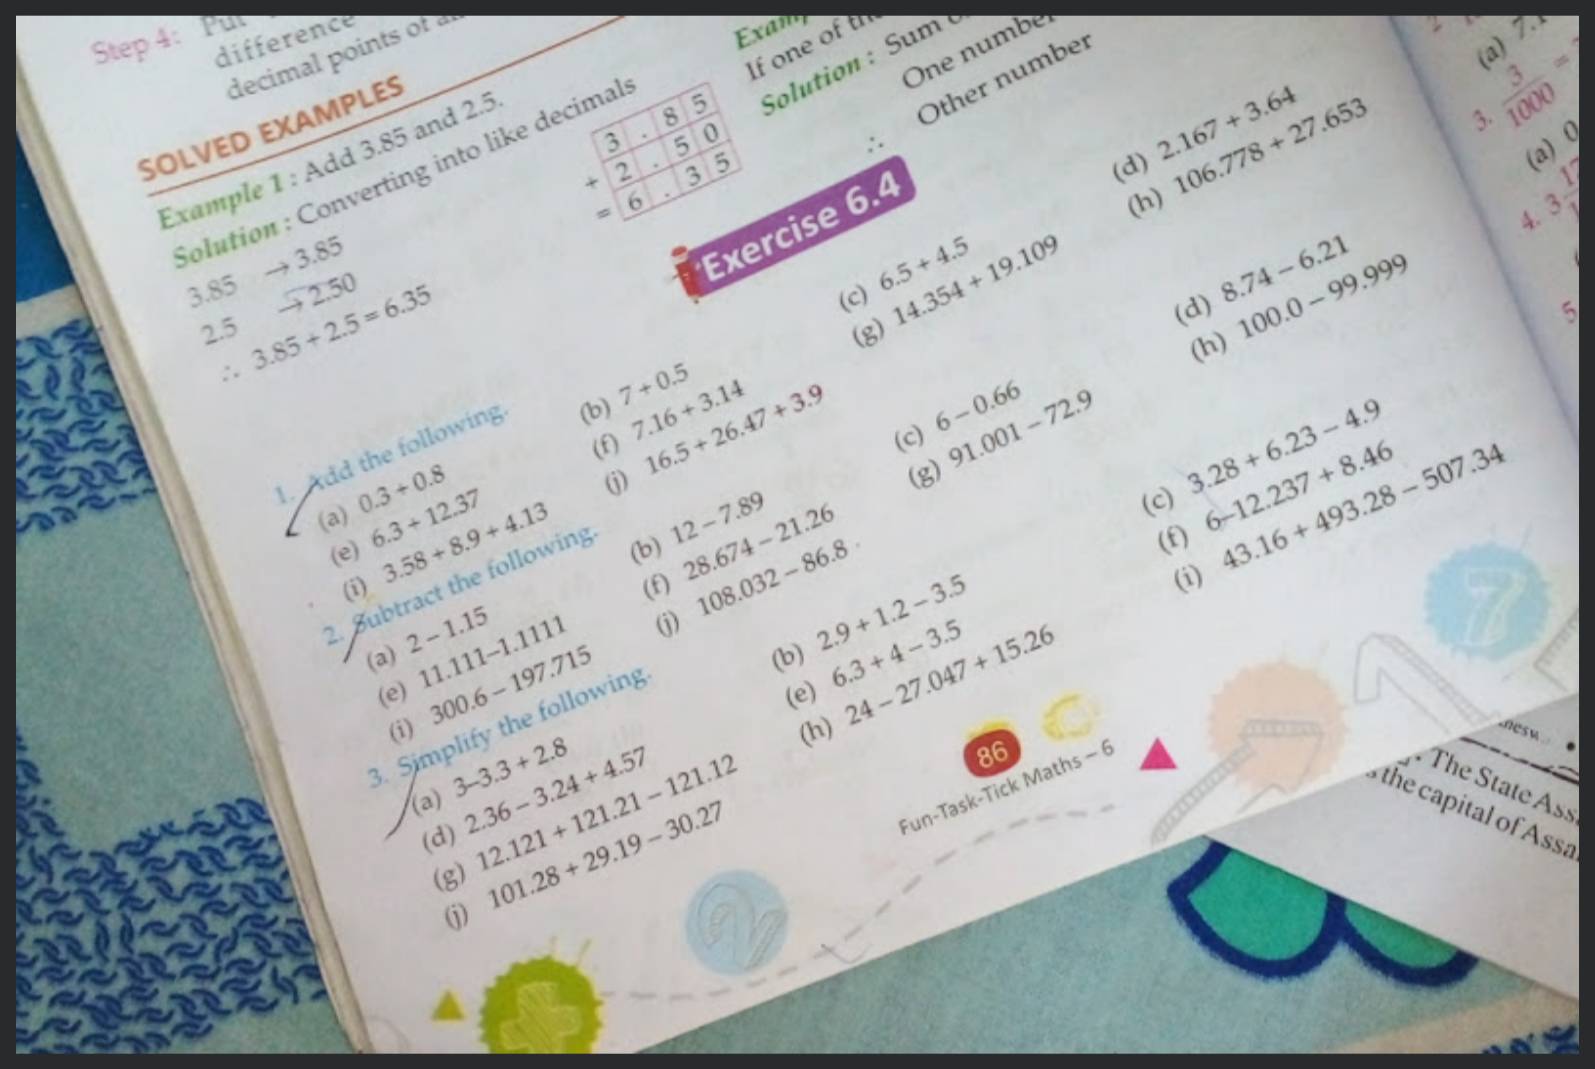 Step 4: Put
difference
decimal points of
SOLVED EXAMPLES
Example 1 : Add 3.85 and 2.5.
Solution : Converting into like decimals
3.85 → 3.85
2.5 → 2.50
∴ 3.85 + 2.5 = 6.35
3 . 8 5
+ 2 . 5 0
= 6 . 3 5
If one of
Solution : Sum
One number
∴ Other number
Exercise 6.4
1. Add the following.
(a) 0.3 + 0.8 (b) 7 + 0.5 (c) 6.5 + 4.5 (d) 2.167 + 3.64
(e) 6.3 + 12.37 (f) 7.16 + 3.14 (g) 14.354 + 19.109 (h) 106.778 + 27.653
(i) 3.58 + 8.9 + 4.13 (j) 16.5 + 26.47 + 3.9
2. Subtract the following.
(a) 2 – 1.15 (b) 12 – 7.89 (c) 6 – 0.66 (d) 8.74 – 6.21
(e) 11.111–1.1111 (f) 28.674 – 21.26 (g) 91.001 – 72.9 (h) 100.0 – 99.999
(i) 300.6 – 197.715 (j) 108.032 – 86.8
3. Simplify the following.
(a) 3–3.3 + 2.8 (b) 2.9 + 1.2 – 3.5 (c) 3.28 + 6.23 – 4.9
(d) 2.36 – 3.24 + 4.57 (e) 6.3 + 4 – 3.5 (f) 6–12.237 + 8.46
(g) 12.121 + 121.21 – 121.12 (h) 24 – 27.047 + 15.26 (i) 43.16 + 493.28 – 507.34
(j) 101.28 + 29.19 – 30.27
86
Fun-Task-Tick Maths – 6
2
1
7
(a) 7.1
3. 3/1000 =
(a) 0
4. 3
5.
The State
the capital of